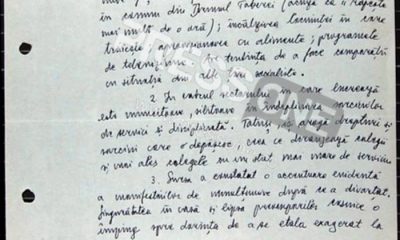 în comun din Drumul Taberei (acuză că îl așteaptă
mai mult de o oră); încălzirea locuinței în care
trăiește, aprovizionarea cu alimente; programele
de televiziune tendința de a face comparații
cu situația din alte țări socialiste.
2. În cadrul sectorului în care lucrează
este muncitoare, silitoare în îndeplinirea sarcinilor
de serviciu și disciplinată. Totuși, își arogă drepturi și
sarcini care o depășesc, ceea ce deranjează colegii
și mai ales colegele cu un stat mai mare de serviciu
3. Sursa a constatat o accentuare evidentă
a manifestărilor de după ce a divorțat.
Singurătatea în casă și lipsa preocupărilor casnice o
împing spre dorința de a se etala exagerat la